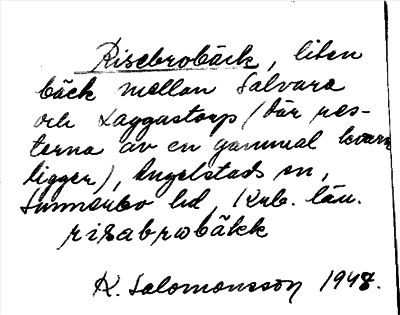 Risebrobäck, liten
bäck mellan Salvara
och Laggastorp (där res-
terna av en gammal kvarn
ligger), Angelstads sn,
Sunnerbo hd, Krb. län.
risabrobäkk
K. Salomonsson 1948.